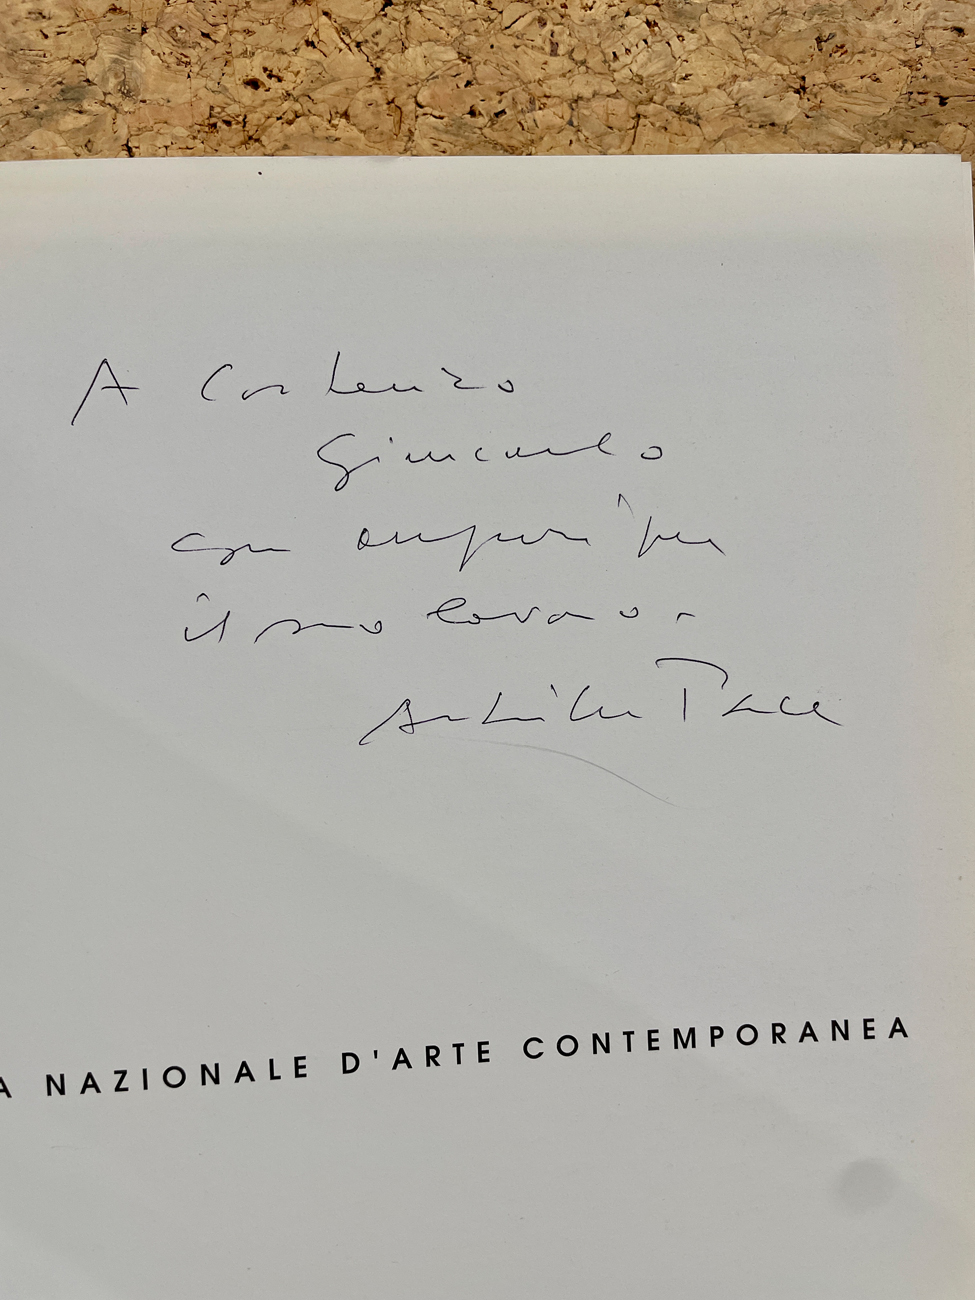 A Costenzo
Giancarlo
con auguri per
il suo lavoro.
Achille Pace
A NAZIONALE D'ARTE CONTEMPORANEA